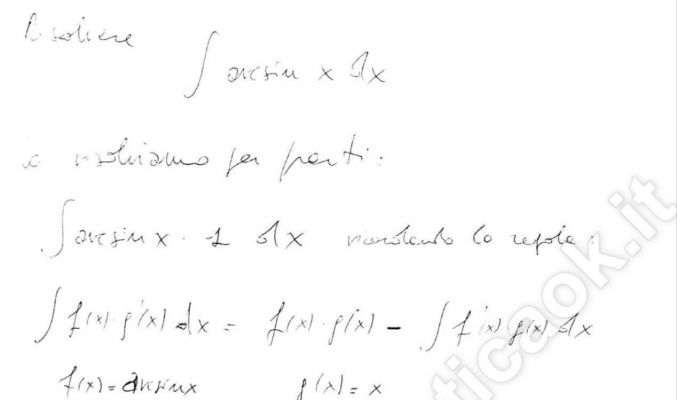 Risolvere
∫ arcsin x dx
lo risolviamo per parti:
∫ arcsin x · 1 dx ricordando la regola:
∫ f(x)·g'(x) dx = f(x)·g(x) - ∫ f'(x)·g(x) dx
f(x) = arcsin x g(x) = x
ticaok.it